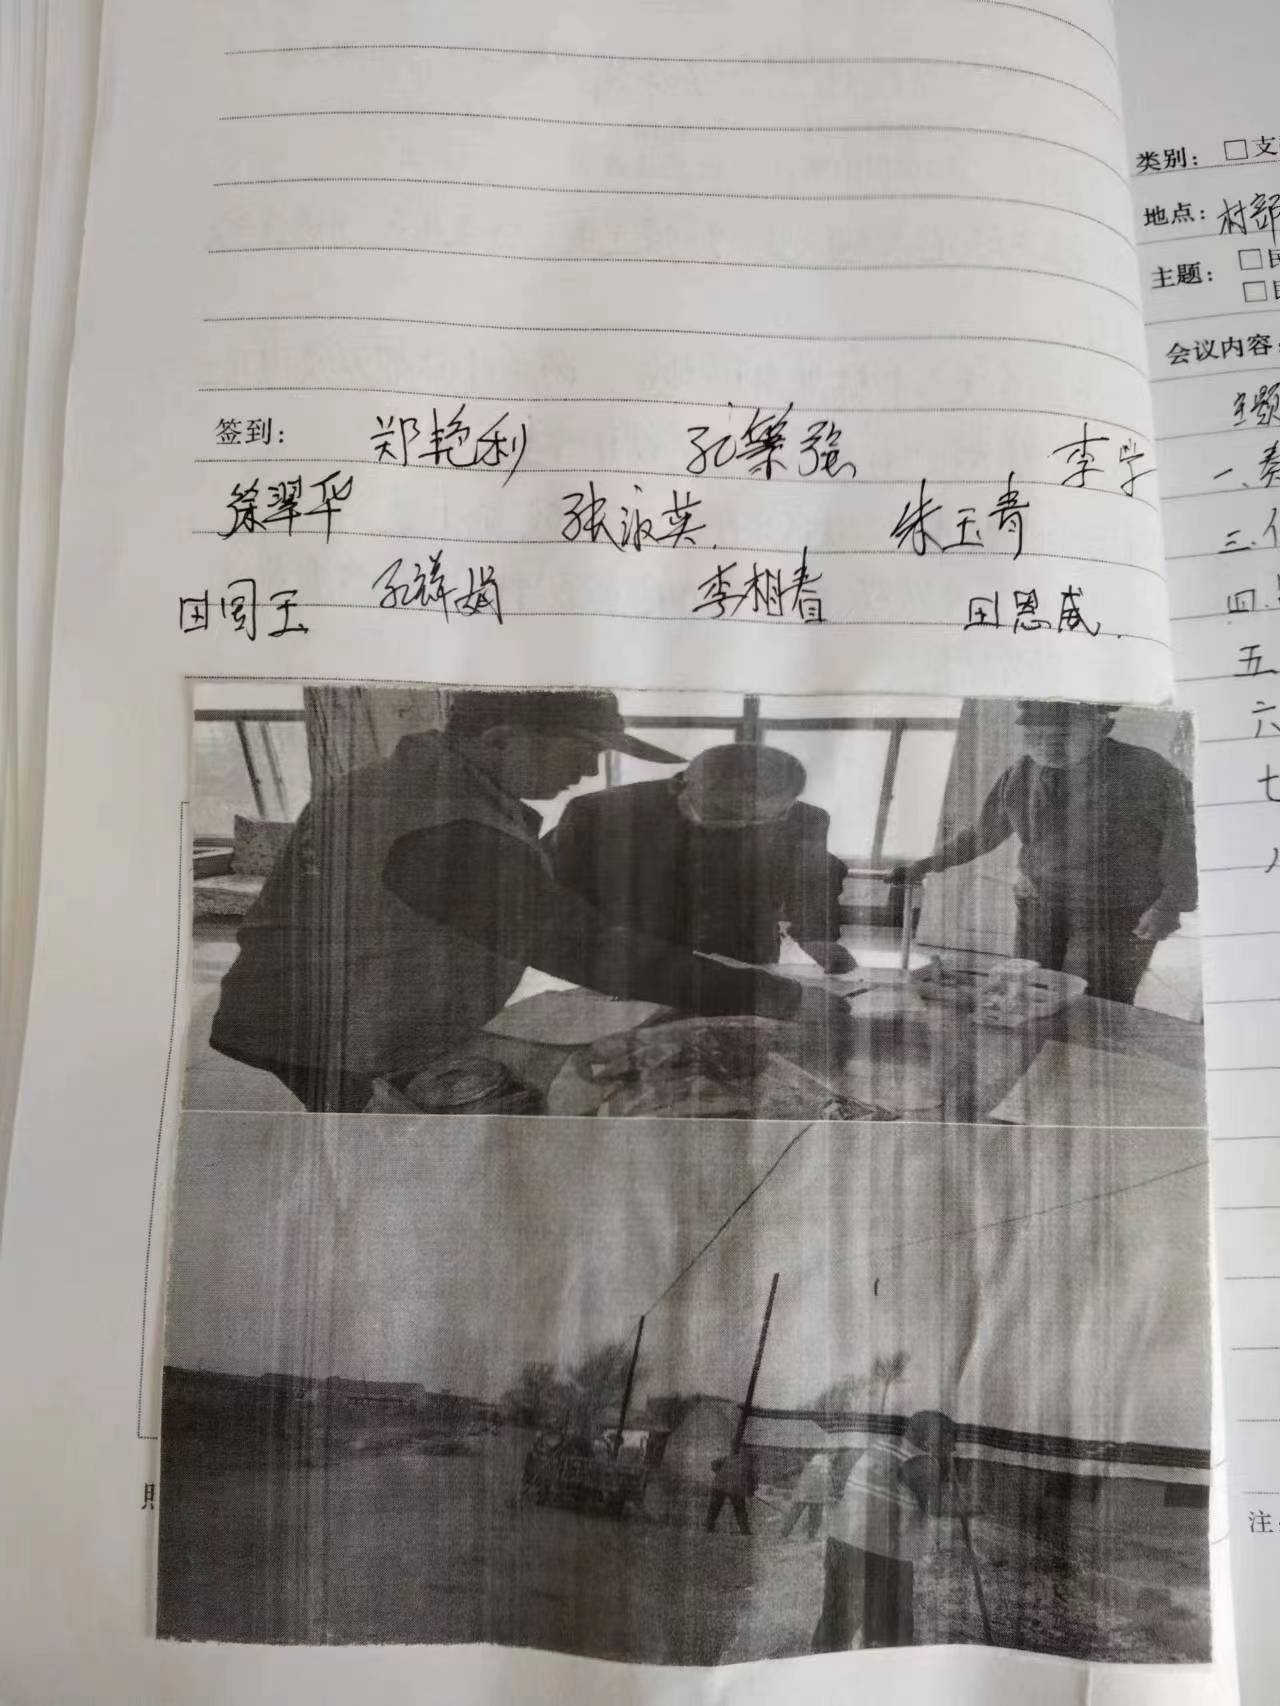 签到： 郑艳利 孔繁强 李学
徐翠华 张淑英 朱玉青
田国玉 孔祥娟 李相春 田恩威
类别：□支
地点：村部
主题：□民
□
会议内容：
主题
一、
三、
四、
五
六
七
八
注：